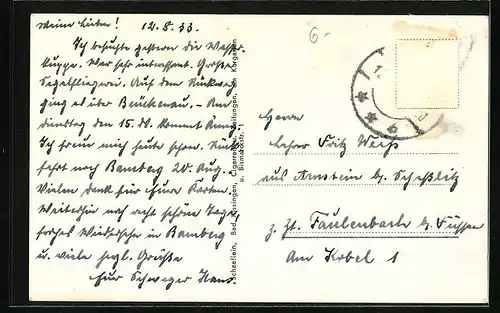 Meine Lieben! 12.8.33.
Ich besuchte gestern die Wasser-
kuppe. War sehr interessant. Große
Segelfliegerei. Auf dem Rückweg
ging es über Brückenau. - Am
Dienstag den 15. kommt
Ich freu mich heute schon. Rück-
fahrt nach Bamberg 20. Aug.
Vielen Dank für Eure Karten.
Weiterhin noch recht schöne Tage,
frohes Wiedersehn in Bamberg
u. viele herzl. Grüße
Euer Schwager Hans.
Bad Kissingen, Cigarren
u. Bismarckstr. 1
6.-
Herrn
Lehrer Fritz Weiß
aus Arnstein b. Scheßlitz
z. Zt. Faulenbach b. Füssen
Am Kobel 1